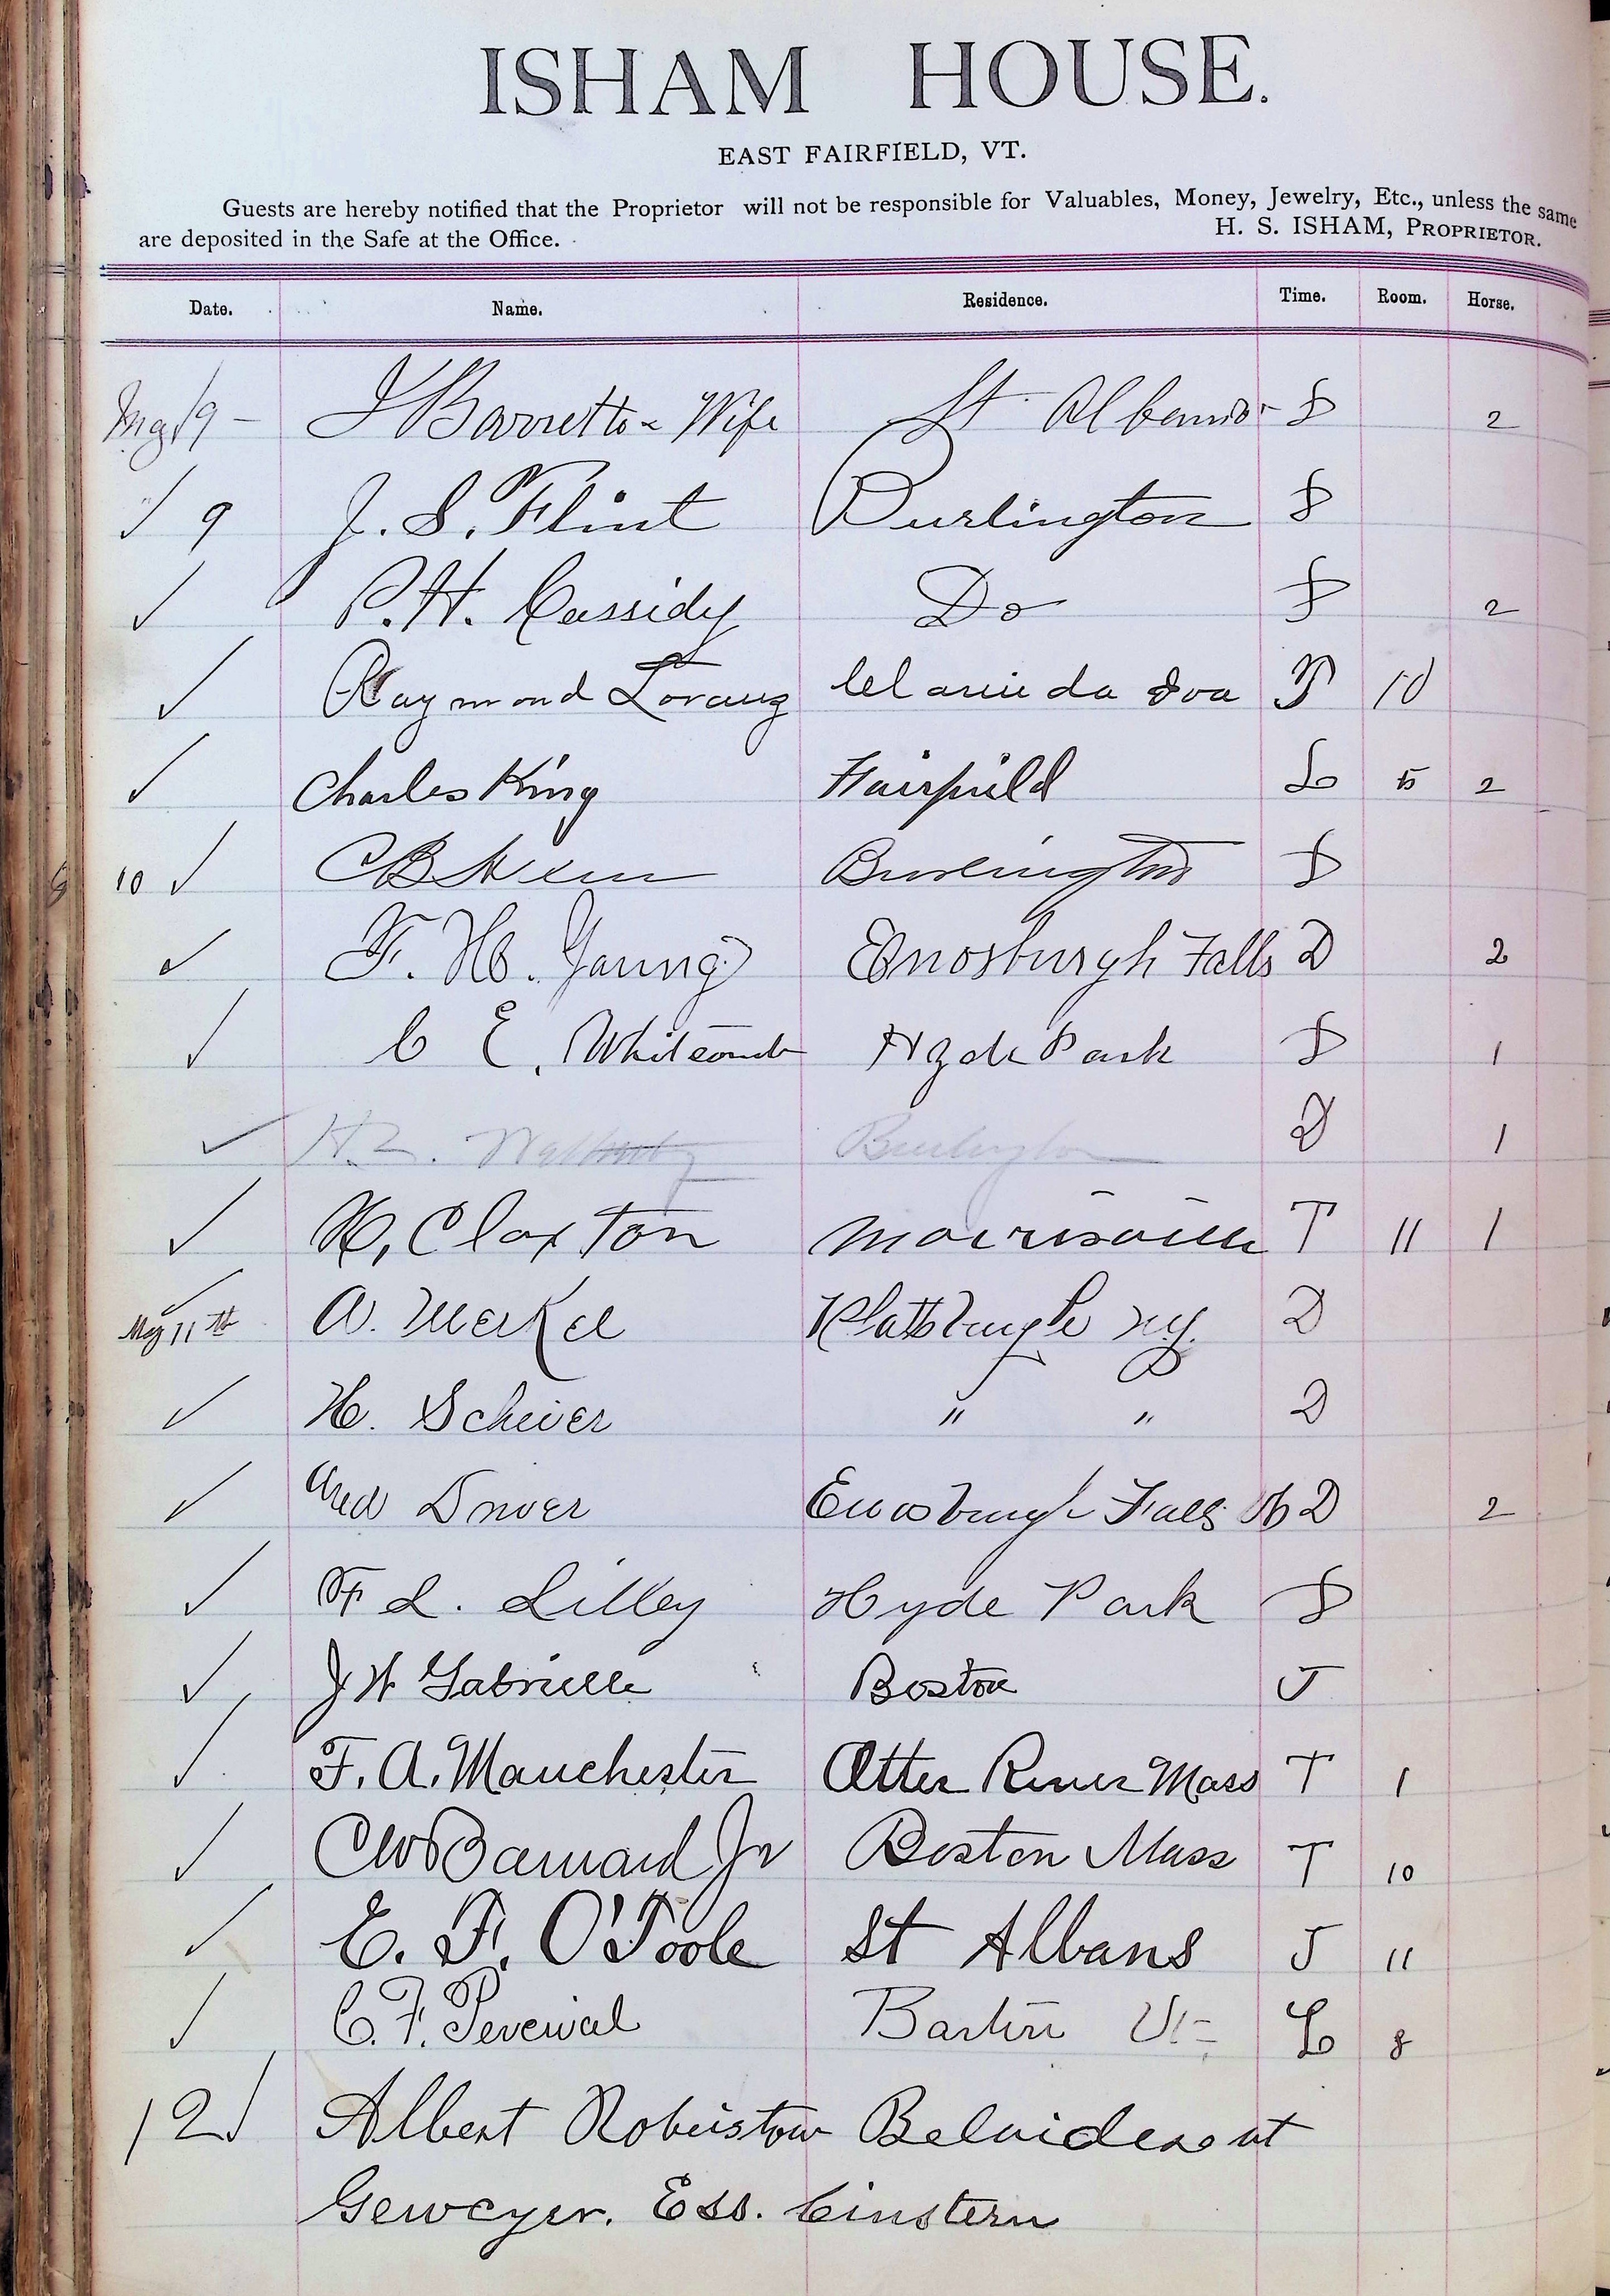 ISHAM HOUSE.
EAST FAIRFIELD, VT.
Guests are hereby notified that the Proprietor will not be responsible for Valuables, Money, Jewelry, Etc., unless the same
are deposited in the Safe at the Office. H. S. ISHAM, PROPRIETOR.
Date. Name. Residence. Time. Room. Horse.
May 9 - J Barrett & Wife St Albans 2
9 J. S. Flint Burlington
✓ P. H. Cassidy Do 2
✓ Raymond Clarinda Ioa T 10
✓ Charles King Fairfield L 5 2
10 ✓ C B Burlington
✓ F. H. Young Enosburgh Falls D 2
✓ C E. Whitcomb Hyde Park 1
✓ Burlington D 1
✓ H. Claxton Morrisville T 11 1
✓
May 11th A. Merkel Plattsburgh N.y. D
✓ H. Scheier " " D
✓ Driver Enosburgh Falls D 2
✓ F L. Lilley Hyde Park
✓ J W Gabrielle Boston T
✓ F. A. Manchester Otter River Mass T 1
✓ CW Barnard Jr Boston Mass T 10
✓ E. F. O'Toole St Albans T 11
✓ C. F. Percival Barton Vt L 8
12 ✓ Albert Robistow Belvidere vt
Ess.